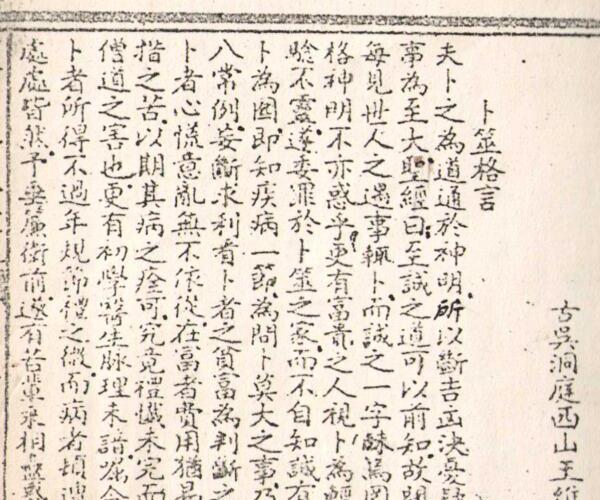 古吳洞庭西山王維
卜筮格言
夫卜之為道通於神明所以斷吉凶決憂
事為至大聖經曰至誠之道可以前知故問
每見世人之遇事輒卜而誠之一字罔
格神明不亦惑乎更有富貴之人視卜為輕
騐不靈遂委罪於卜筮之家而不自知誠有
卜為圂即知疾病一節為問卜莫大之事乃
八常例妄斷求利看卜者之貧富為判斷之
卜者心慌意亂無不依從在富者費用猶易
措之苦以期其病之痊可究竟禮懺未完而
僧道之害也更有初學醫生脉理未諳
卜者所得不過年規節禮之微而病者頓遭
處處皆然予垂簾街前遂有若輩來相